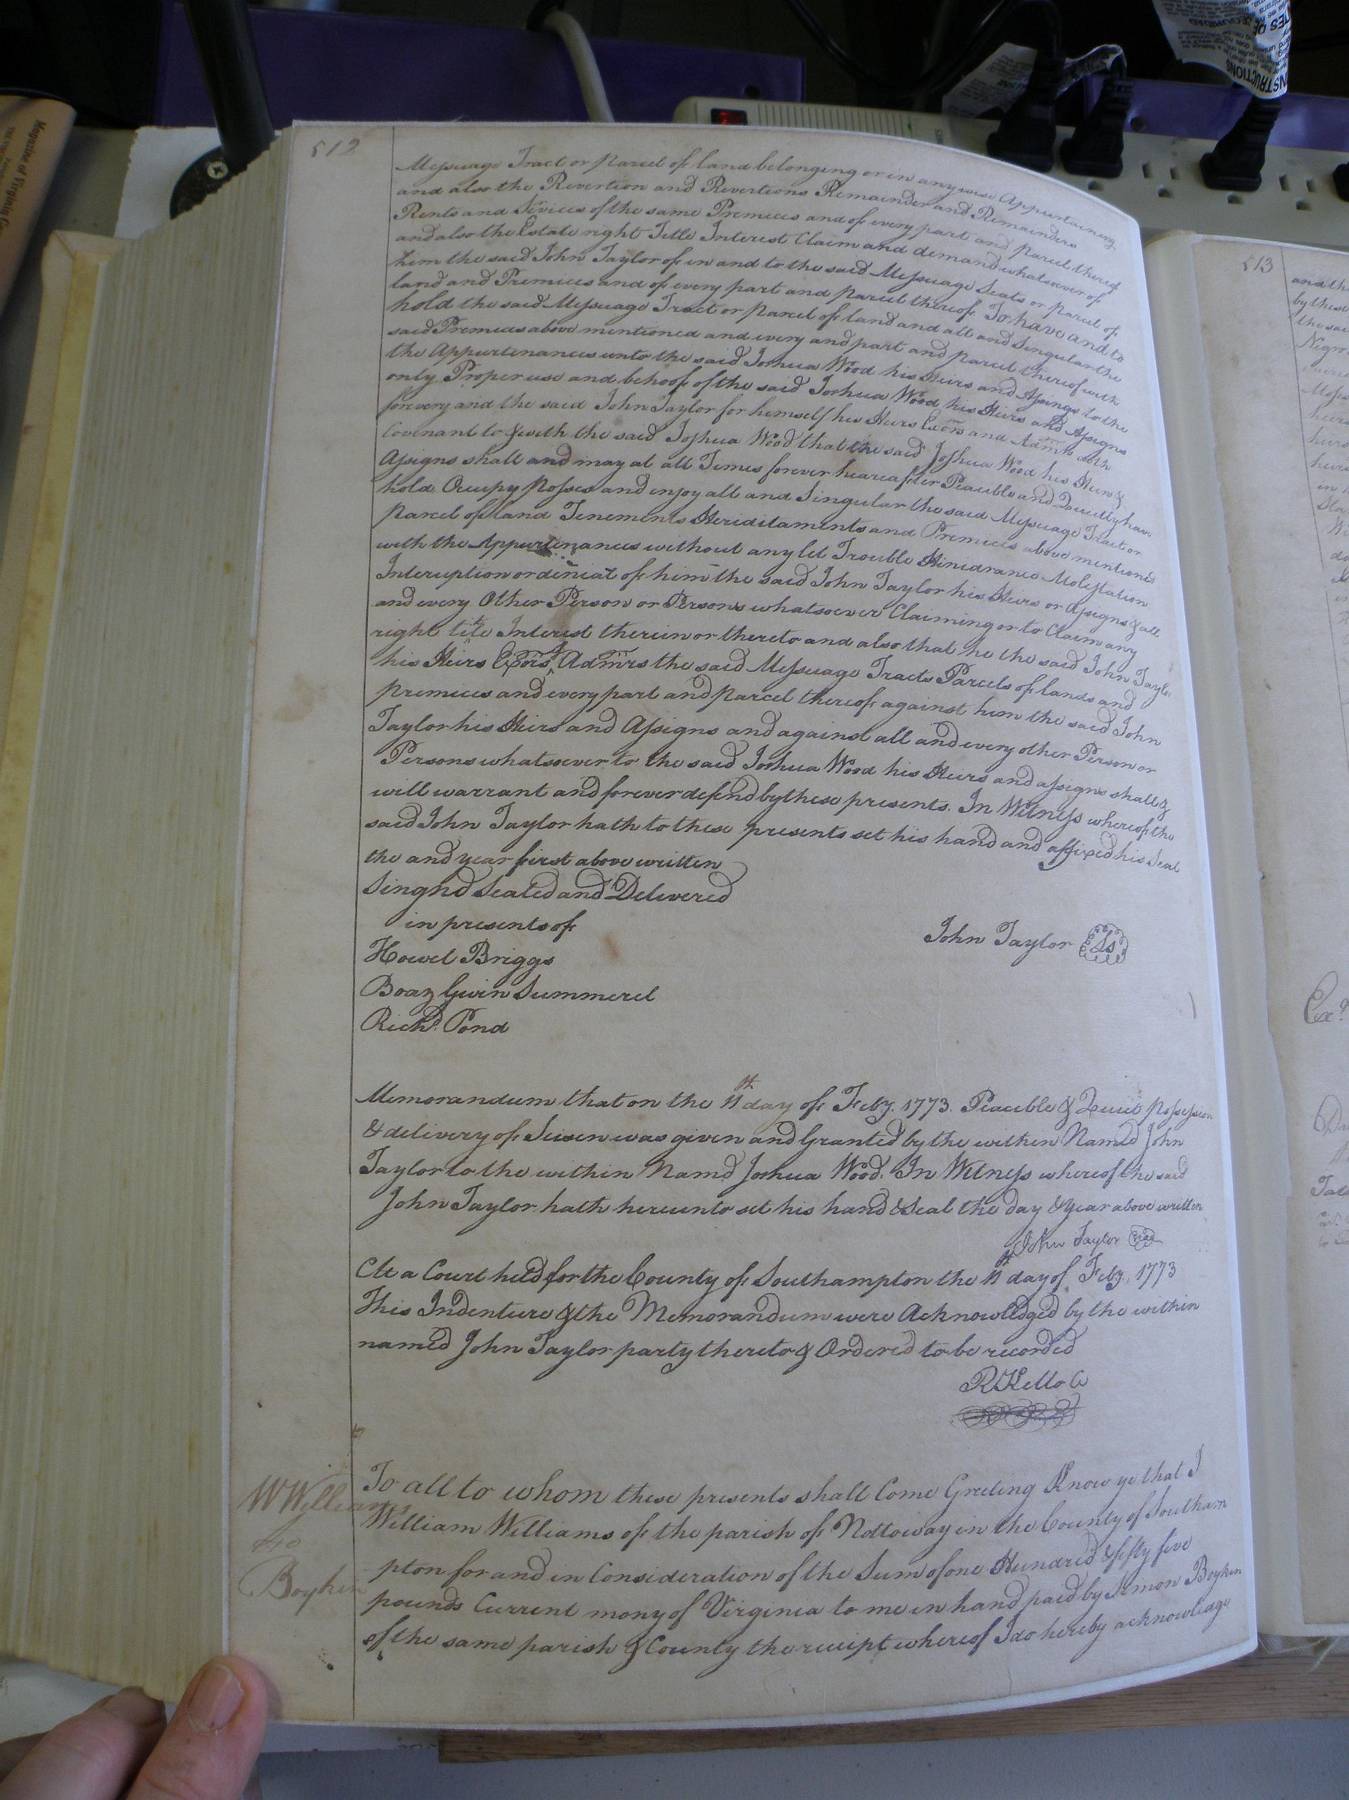 512
Messuage Tract or Parcel of land belonging or in any wise Appertaining
and also the Revertion and Revertions Remainder and Remainders
Rents and Sevices of the same Premices and of every part and Parcel thereof
and also the Estate right Title Interest Claim and demand whatsoever of
him the said John Taylor of in and to the said Messuage Seats or Parcel of
land and Premices and of every part and Parcel thereof To have and to
hold the said Messuage Tract or Parcel of land and all and Singular the
said Premices above mentioned and every and part and Parcel thereof with
the Appurtenances unto the said Joshua Wood his Heirs and Assings to the
only Proper use and behoof of the said Joshua Wood his Heirs and Assigns
forevery and the said John Taylor for himself his Heirs Exors and Admrs doth
Covenant to & with the said Joshua Wood that the said Joshua Wood his Heirs &
Assigns shall and may at all Times forever heareafter Peacible and Quietly have
hold Occupy Posses and enjoy all and Singular the said Messuage Tract or
Parcel of land Tenements Heriditaments and Premices above mentioned
with the Appurtenances without any let Trouble Hinedrance Molestation
Interuption or denial of him the said John Taylor his Heirs or Assigns & all
and every Other Person or Persons whatsoever Claiming or to Claim any
right title Interest therein or thereto and also that he the said John Taylor
his Heirs Exors & Admrs the said Messuage Tracts Parcels of lands and
premices and every part and Parcel thereof against him the said John
Taylor his Heirs and Assigns and against all and every other Person or
Persons whatsoever to the said Joshua Wood his Heirs and assigns shall &
will warrant and forever defend by these presents. In Witness whereof the
said John Taylor hath to these presents set his hand and affixed his Seal
the and year first above written
Singnd Sealed and Delivered
in presents of
John Taylor Ls
Howel Briggs
Boaz Gwin Summerel
Richd. Pond
Memorandum that on the 11th day of Feby. 1773. Peacible & Quiet Possession
& delivery of Seisen was given and Granted by the within Named John
Taylor to the within Namd Joshua Wood. In Witness whereof the said
John Taylor hath hereunto set his hand & Seal the day & year above written
John Taylor Seal
At a Court held for the County of Southampton the 11th day of Feby. 1773
This Indenture & the Memorandum were Acknowledged by the within
named John Taylor party thereto & Ordered to be recorded
R Kello C
W Williams
to
Boykin
To all to whom these presents shall Come Greeting Know ye that I
William Williams of the parish of Nottoway in the County of Southam
pton for and in Consideration of the Sum of one Hundred & fifty five
pounds Current mony of Virginia to me in hand paid by Simon Boykin
of the same parish & County the receipt whereof I do hereby acknowledge
513
and th
by these
the sai
Negro
INSTRUCTIONS
Magazine of Virginia